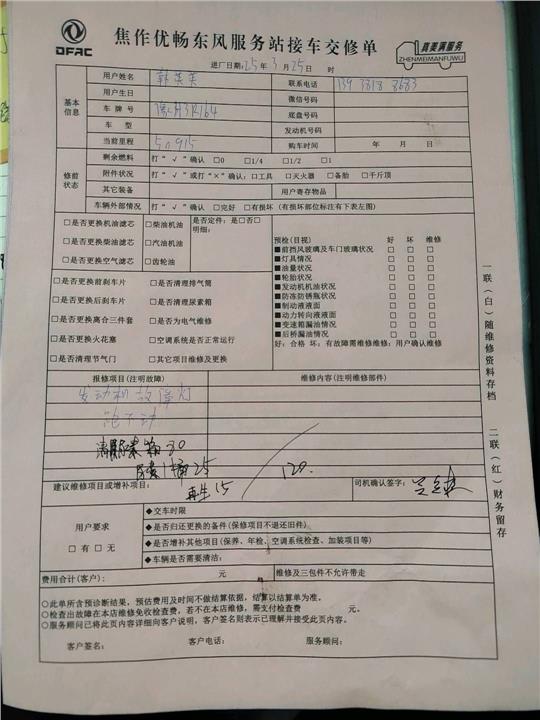 DFAC
焦作优畅东风服务站接车交修单
真美满服务
ZHENMEIMANFUWU
进厂日期:25年3月25日 时
基本信息
用户姓名
联系电话 139 3818 8683
用户生日 微信号码
车牌号 底盘号码
车型 发动机号码
当前里程 50915 购车时间 年 月 日
修前状态
剩余燃料 打“√”确认 □0 □1/4 □1/2 □1
附件状况 打“√”或打“×”确认:□工具 □灭火器 □备胎 □千斤顶
其它装备 用户寄存物品
车辆外部情况 打“√”确认 □完好 □有损坏(有损坏部位标注有下表左图)
□是否更换机油滤芯 □柴油机油
□是否更换柴油滤芯 □汽油机油
□是否更换空气滤芯 □齿轮油
是否定件:是□否□
明细:
□是否更换前刹车片 □是否清理排气筒
□是否更换后刹车片 □是否清理尿素箱
□是否更换离合三件套 □是否为电气维修
□是否更换火花塞 □空调系统是否正常运行
□是否清理节气门 □其它项目维修及更换
预检(目视) 好 坏 维修
■前挡风玻璃及车门玻璃状况 □ □ □
■灯具情况 □ □ □
■油量状况 □ □ □
■轮胎状况 □ □ □
■发动机机油状况 □ □ □
■防冻防锈瓶状况 □ □ □
■制动液液面 □ □ □
■动力转向液液面 □ □ □
■变速箱漏油情况 □ □ □
■后桥漏油情况 □ □ □
好:合格 坏:有故障需维修维修:用户确认维修
报修项目(注明故障) 维修内容(注明维修部件)
发动机故障灯
跑不动
清尿素箱 30
尿素1桶 25
再生 15
120.
建议维修项目或增补项目: 司机确认签字:
用户要求
□有□无
◆交车时限
◆是否归还更换的备件(保修项目不退还旧件)
◆是否增补其他项目(保养、年检、空调系统检查、加装项目等)
◆车辆是否需要清洁:
费用合计(客户): 元 维修及三包件不允许带走
○此单所含预诊断结果,预估费用及时间不做结算依据,结算以结算单为准。
○检查出故障在本店维修免收检查费,若不在本店维修,需支付检查费 元。
○服务顾问已将此页内容详细向客户说明,客户签名则表示已理解并接受此页内容。
客户签名: 客户电话: 服务顾问:
一联(白)随维修资料存档
二联(红)财务留存